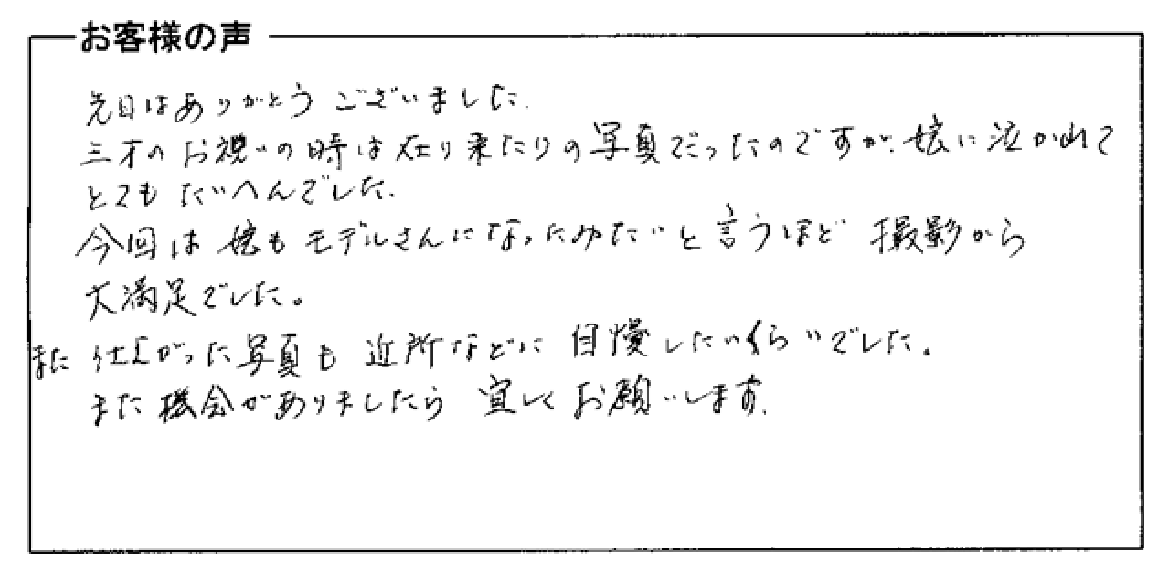 お客様の声
先日はありがとうございました.
三才のお祝いの時は在り来たりの写真だったのですが、娘に泣かれて
とてもたいへんでした.
今回は娘もモデルさんになったみたいと言うほど撮影から
大満足でした。
また仕上がった写真も近所などに自慢したいくらいでした。
また機会がありましたら宜しくお願いします.